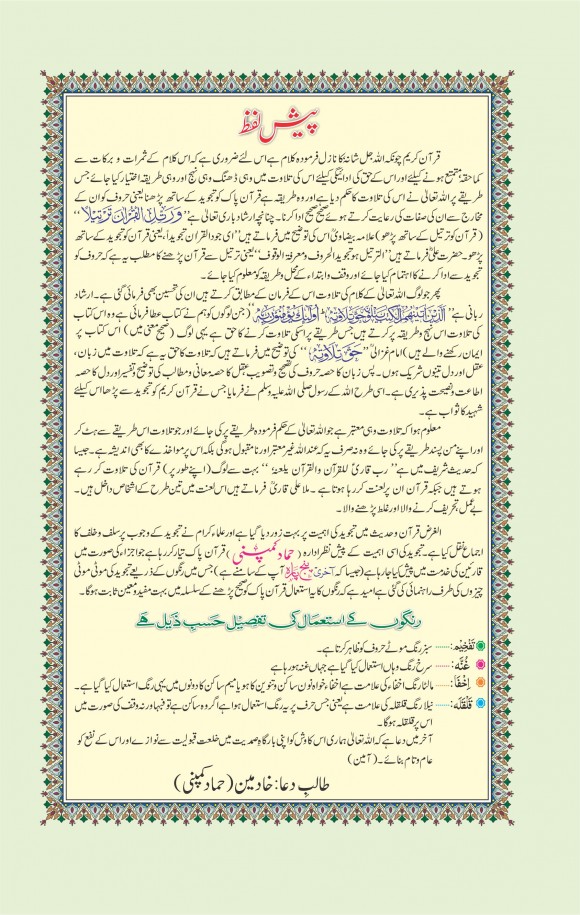 پیش لفظ
قرآن کریم چونکہ اللہ جل شانہٗ کا نازل فرمودہ کلام ہے اس لئے ضروری ہے کہ اس کلام کے ثمرات و برکات سے
کما حقہٗ متمتع ہونے کیلئے اور اس کے حق کی ادائیگی کیلئے اس کی تلاوت میں وہی ڈھنگ وہی نہج اور وہی طریقہ اختیار کیا جائے جس
طریقے پر اللہ تعالیٰ نے اس کی تلاوت کا حکم دیا ہے اور وہ طریقہ ہے قرآن پاک کو تجوید کے ساتھ پڑھنا یعنی حروف کو ان کے
مخارج سے ان کی صفات کی رعایت کرتے ہوئے صحیح صحیح ادا کرنا۔ چنانچہ ارشاد باری تعالیٰ ہے ”وَرَتِّلِ الْقُرْاٰنَ تَرْتِیْلًا“
(قرآن کو ترتیل کے ساتھ پڑھو) علامہ بیضاویؒ اس کی توضیح میں فرماتے ہیں ”ای جود القران تجویدا، یعنی قرآن کو تجوید کے ساتھ
پڑھو۔ حضرت علیؓ فرماتے ہیں ”الترتیل ہو تجوید الحروف ومعرفۃ الوقوف“ یعنی ترتیل سے قرآن پڑھنے کا مطلب یہ ہے کہ حروف کو
تجوید سے ادا کرنے کا اہتمام کیا جائے اور وقف وابتداء کے محل و طریقہ کو معلوم کیا جائے۔
پھر جو لوگ اللہ تعالیٰ کے کلام کی تلاوت اس کے فرمان کے مطابق کرتے ہیں ان کی تحسین بھی فرمائی گئی ہے۔ ارشاد
ربانی ہے ”اَلَّذِیْنَ اٰتَیْنٰھُمُ الْکِتٰبَ یَتْلُوْنَہٗ حَقَّ تِلَاوَتِہٖ اُولٰٓئِکَ یُؤْمِنُوْنَ بِہٖ“ (جن لوگوں کو ہم نے کتاب عطا فرمائی ہے وہ اس کتاب
کی تلاوت اس نہج و طریقہ پر کرتے ہیں جس طریقے پر اسکی تلاوت کرنے کا حق ہے یہی لوگ (صحیح معنی میں) اس کتاب پر
ایمان رکھنے والے ہیں) امام غزالیؒ ”حَقَّ تِلَاوَتِہٖ“ کی توضیح میں فرماتے ہیں کہ تلاوت کا حق یہ ہے کہ تلاوت میں زبان،
عقل اور دل تینوں شریک ہوں۔ پس زبان کا حصہ حروف کی تصحیح وتصویب عقل کا حصہ معانی و مطالب کی توضیح وتفسیر اور دل کا حصہ
اطاعت ونصیحت پذیری ہے۔ اسی طرح اللہ کے رسول صلی اللہ علیہ وسلم نے فرمایا جس نے قرآن کریم کو تجوید سے پڑھا اس کیلئے
شہید کا ثواب ہے۔
معلوم ہوا کہ تلاوت وہی معتبر ہے جو اللہ تعالیٰ کے حکم فرمودہ طریقے پر کی جائے اور جو تلاوت اس طریقے سے ہٹ کر
اور اپنے من پسند طریقے پر کی جائے وہ نہ صرف یہ کہ عند اللہ غیر معتبر اور نا مقبول ہوگی بلکہ اس پر مواخذے کا بھی اندیشہ ہے۔ جیسا
کہ حدیث شریف میں ہے ”رب قاریٔ للقرآن والقرآن یلعنہ“ بہت سے لوگ (اپنے طور پر) قرآن کی تلاوت کر رہے
ہوتے ہیں جبکہ قرآن ان پر لعنت کر رہا ہوتا ہے۔ ملا علی قاریؒ فرماتے ہیں اس لعنت میں تین طرح کے اشخاص داخل ہیں۔
بے عمل، تحریف کرنے والا، اور غلط پڑھنے والا۔
الغرض قرآن وحدیث میں تجوید کی اہمیت پر بہت زور دیا گیا ہے اور علماء کرام نے تجوید کے وجوب پر سلف و خلف کا
اجماع نقل کیا ہے۔ تجوید کی اسی اہمیت کے پیش نظر ادارہ (حماد کمپنی) قرآن پاک تیار کر رہا ہے جو اجزاء کی صورت میں
قارئین کی خدمت میں پیش کیا جا رہا ہے (جیسا کہ آخری پنج پارہ آپ کے سامنے ہے) جس میں رنگوں کے ذریعے تجوید کی موٹی موٹی
چیزوں کی طرف راہنمائی کی گئی ہے امید ہے کہ رنگوں کا یہ استعمال قرآن پاک کو صحیح پڑھنے کے سلسلہ میں بہت مفید و معین ثابت ہوگا۔
رنگوں کے استعمال کی تفصیل حسب ذیل ہے
تَفْخِیْم: ...... سبز رنگ موٹے حروف کو ظاہر کرتا ہے۔
غُنَّہ: ...... سرخ رنگ وہاں استعمال کیا گیا ہے جہاں غنہ ہو رہا ہے
اِخْفَآ: ...... مالٹا رنگ اخفاء کی علامت ہے اخفاء خواہ نون ساکن و تنوین کا ہو یا میم ساکن کا دونوں میں یہی رنگ استعمال کیا گیا ہے۔
قَلْقَلَہ: ...... نیلا رنگ قلقلہ کی علامت ہے یعنی جس حرف پر یہ رنگ استعمال ہوا ہے اگر وہ ساکن ہے تو فبہا ورنہ وقف کی صورت میں
اس پر قلقلہ ہوگا۔
آخر میں دعا ہے کہ اللہ تعالیٰ ہماری اس کاوش کو اپنی بارگاہ صمدیت میں خلعت قبولیت سے نوازے اور اس کے نفع کو
عام و تام بنائے۔ (آمین)
طالب دعا: خادمین (حماد کمپنی)